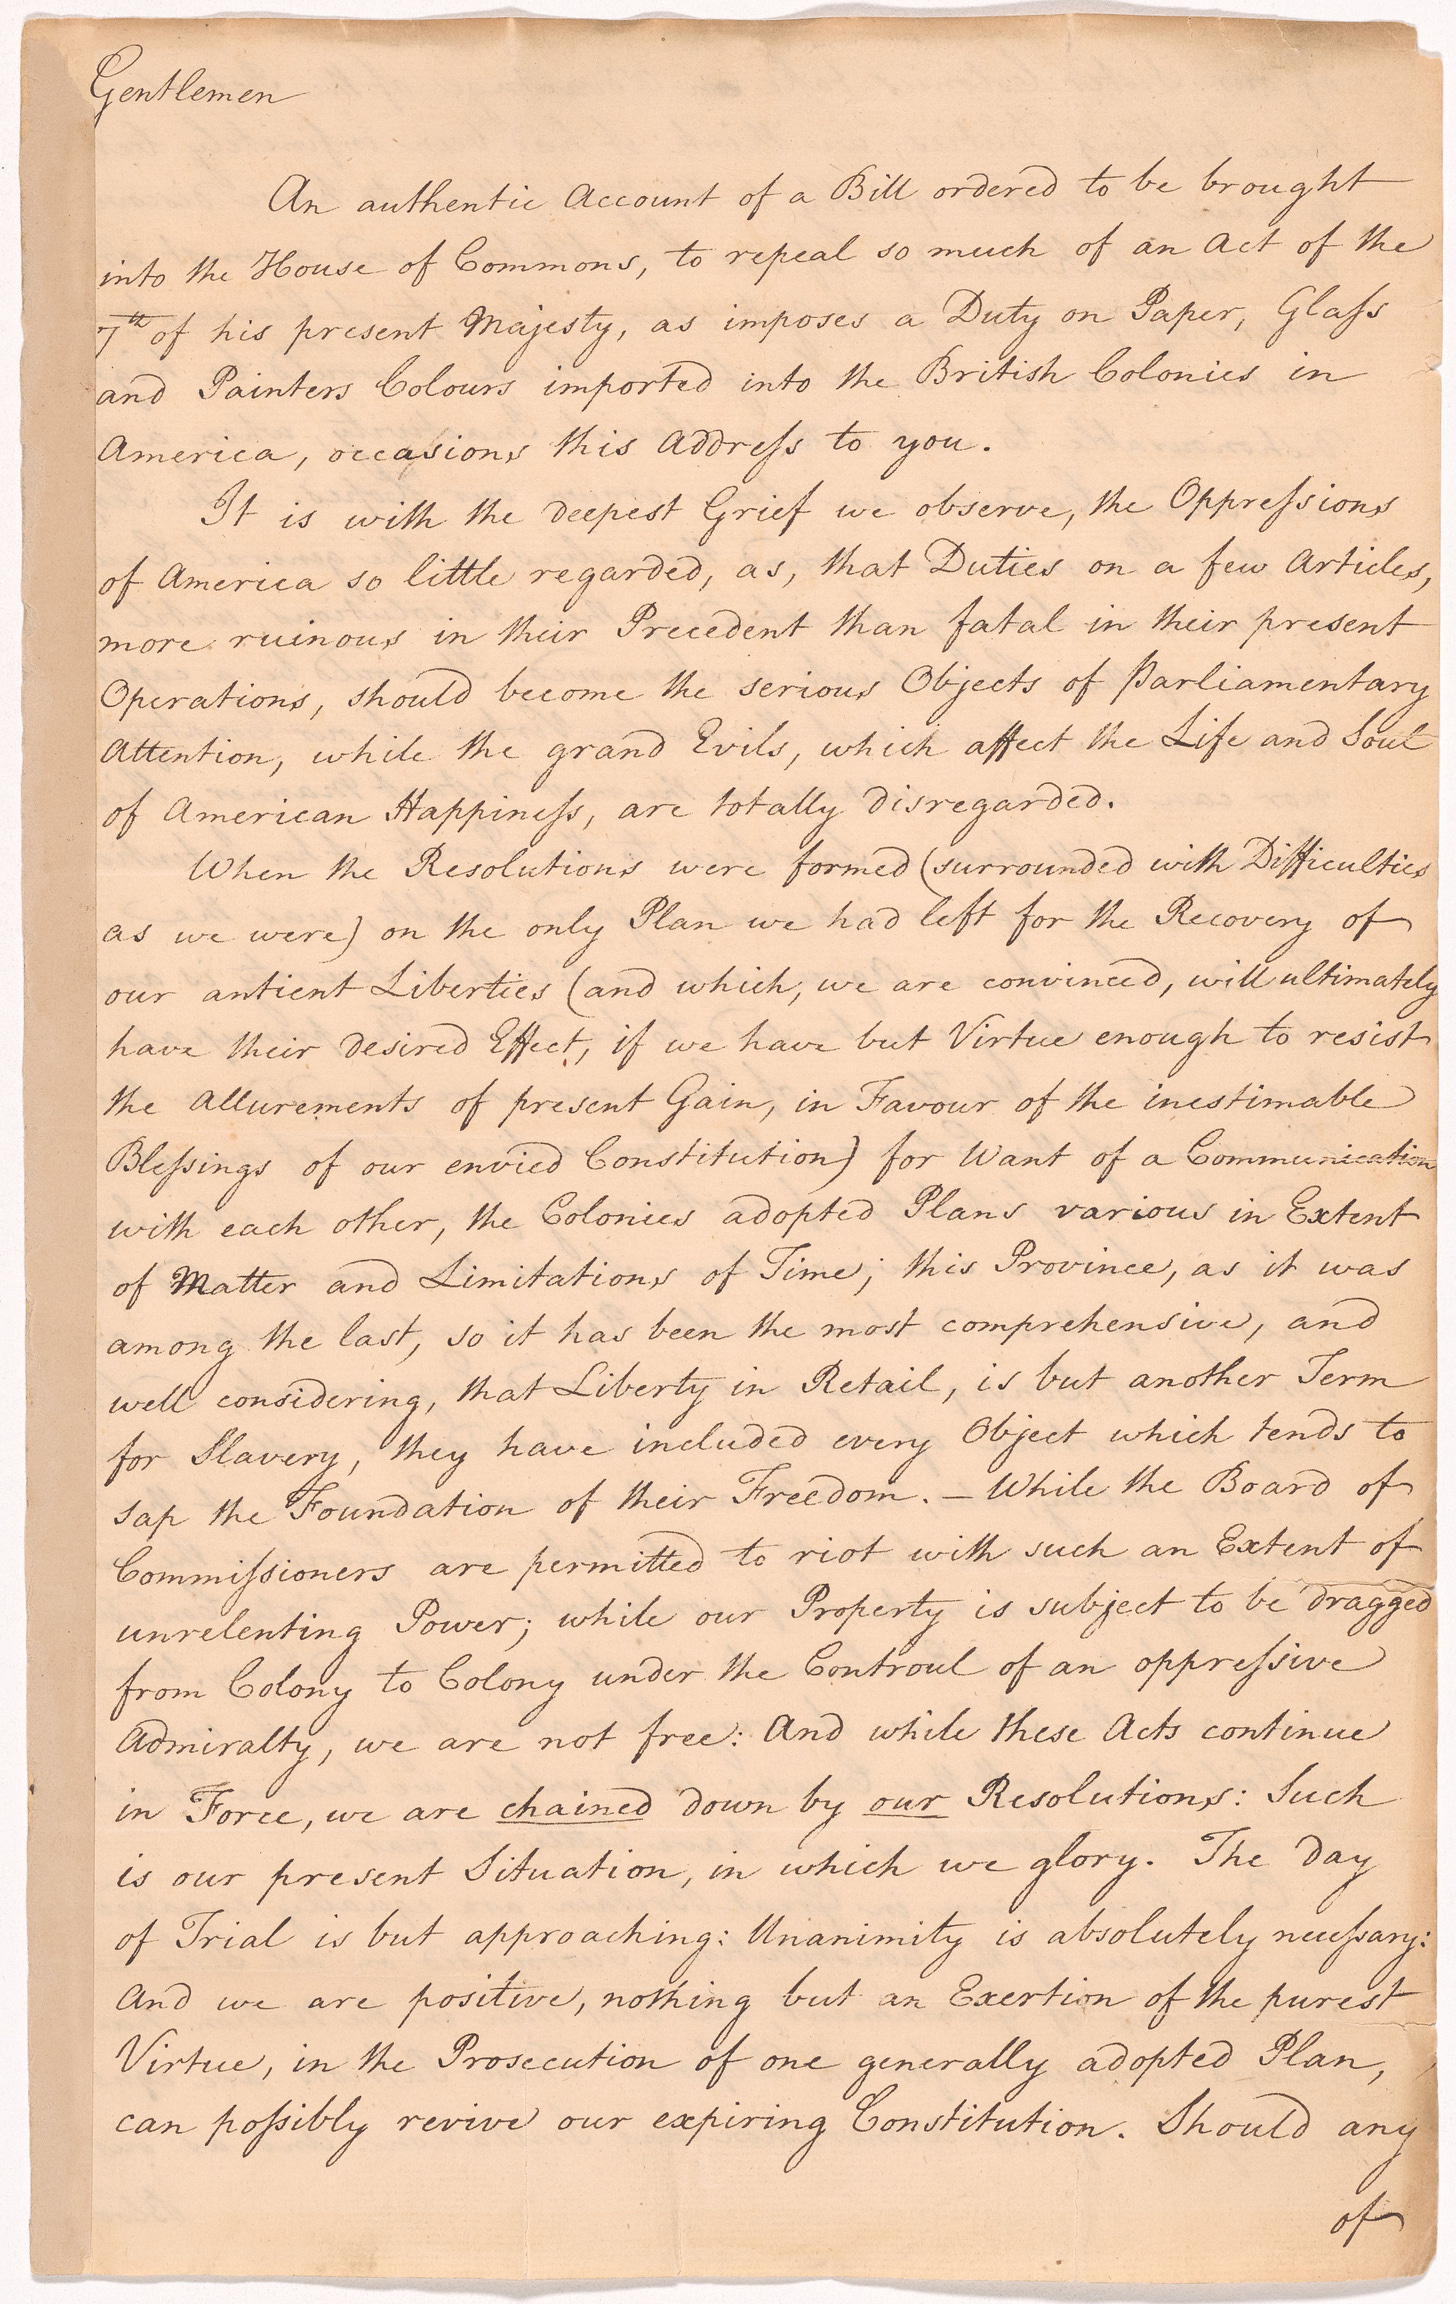 Gentlemen
An authentic Account of a Bill ordered to be brought
into the House of Commons, to repeal so much of an Act of the
7th of his present Majesty, as imposes a Duty on Paper, Glaſs
and Painters Colours imported into the British Colonies in
America, occasions this Addreſs to you.
It is with the deepest Grief we observe, the Oppreſsions
of America so little regarded, as, that Duties on a few Articles,
more ruinous in their Precedent than fatal in their present
Operations, should become the serious Objects of Parliamentary
Attention, while the grand Evils, which affect the Life and Soul
of American Happineſs, are totally disregarded.
When the Resolutions were formed (surrounded with Difficulties
as we were) on the only Plan we had left for the Recovery of
our antient Liberties (and which, we are convinced, will ultimately
have their desired Effect, if we have but Virtue enough to resist
the Allurements of present Gain, in Favour of the inestimable
Bleſsings of our envied Constitution) for Want of a Communication
with each other, the Colonies adopted Plans various in Extent
of Matter and Limitations of Time; this Province, as it was
among the last, so it has been the most comprehensive, and
well considering, that Liberty in Retail, is but another Term
for Slavery, they have included every Object which tends to
sap the Foundation of their Freedom. – While the Board of
Commiſsioners are permitted to riot with such an Extent of
unrelenting Power; while our Property is subject to be dragged
from Colony to Colony under the Controul of an oppreſsive
Admiralty, we are not free: And while these Acts continue
in Force, we are chained down by our Resolutions: Such
is our present Situation, in which we glory. The Day
of Trial is but approaching: Unanimity is absolutely neceſsary:
And we are positive, nothing but an Exertion of the purest
Virtue, in the Prosecution of one generally adopted Plan,
can poſsibly revive our expiring Constitution. Should any
of